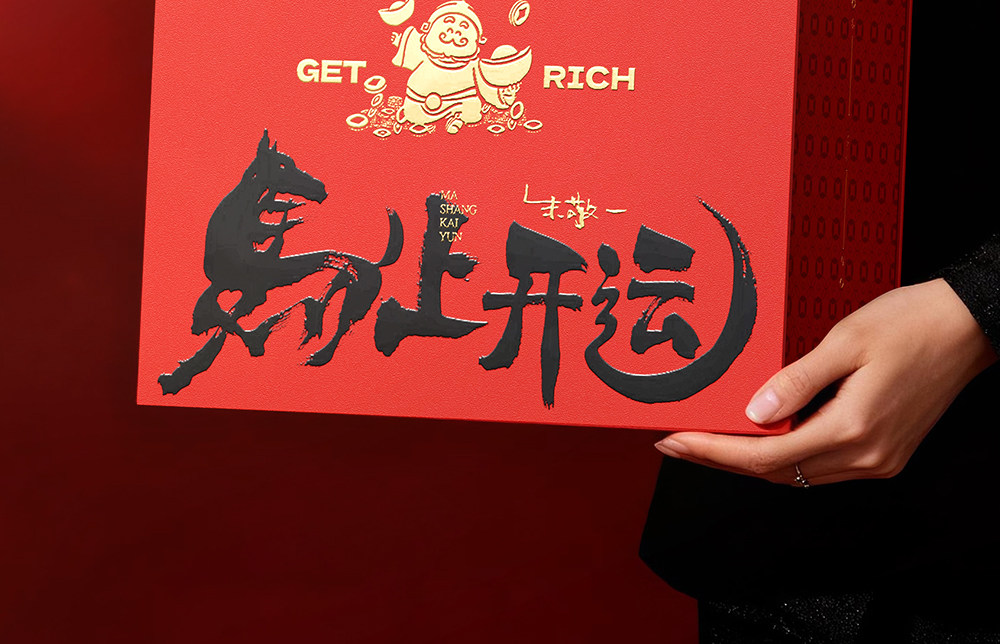 GET RICH
MA
SHANG
KAI
YUN
朱敬一
馬上开运